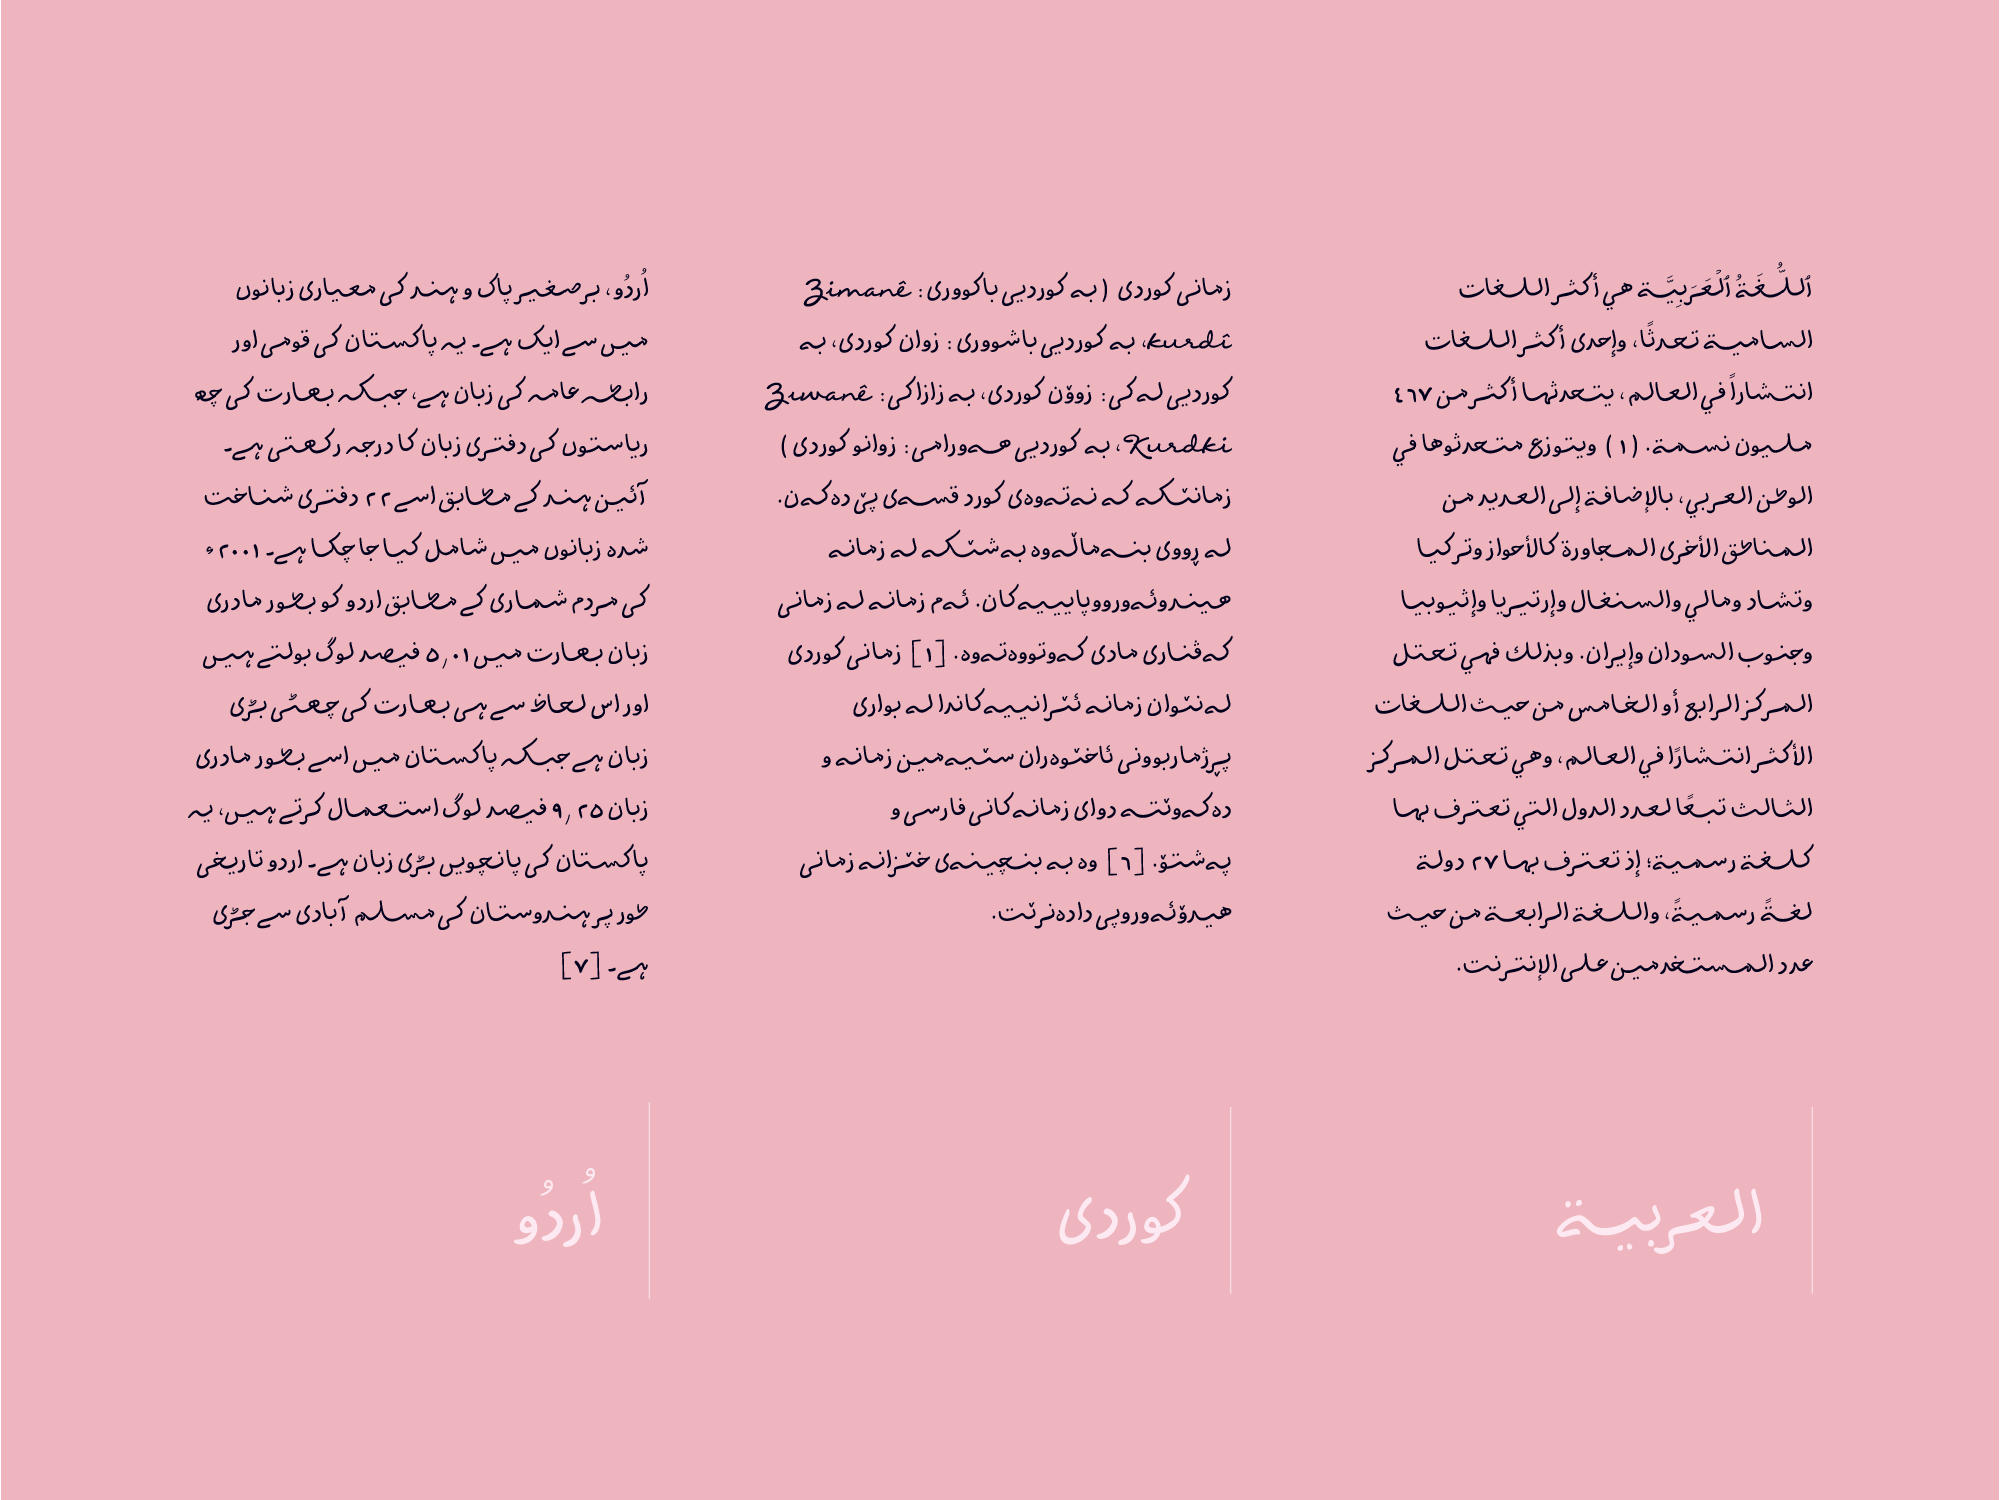 ٱللُّغَةُ ٱلْعَرَبِيَّة هي أكثر اللغات
السامية تحدثًا، وإحدى أكثر اللغات
انتشاراً في العالم، يتحدثها أكثر من ٤٦٧
مليون نسمة. (١) ويتوزع متحدثوها في
الوطن العربي، بالإضافة إلى العديد من
المناطق الأخرى المجاورة كالأحواز وتركيا
وتشاد ومالي والسنغال وإرتيريا وإثيوبيا
وجنوب السودان وإيران. وبذلك فهي تحتل
المركز الرابع أو الخامس من حيث اللغات
الأكثر انتشارًا في العالم، وهي تحتل المركز
الثالث تبعًا لعدد الدول التي تعترف بها
كلغة رسمية؛ إذ تعترف بها ٢٧ دولة
لغةً رسميةً، واللغة الرابعة من حيث
عدد المستخدمين على الإنترنت.
العربية
زمانی کوردی (بە کوردیی باکووری: Zimanê
kurdî، بە کوردیی باشووری: زوان کوردی، بە
کوردیی لەکی: زووۆن کوردی، بە زازاکی: Ziwanê
Kurdki، بە کوردیی هەورامی: زوانو کوردی)
زمانێکە کە نەتەوەی کورد قسەی پێ دەکەن.
لە ڕووی بنەماڵەوە بەشێکە لە زمانە
هیندوئەورووپاییەکان. ئەم زمانە لە زمانی
کەڤناری مادی کەوتووەتەوە. [١] زمانی کوردی
لەنێوان زمانە ئێرانییەکاندا لە بواری
پڕژماربوونی ئاخێوەران سێیەمین زمانە و
دەکەوێتە دوای زمانەکانی فارسی و
پەشتۆ. [٦] وە بە بنچینەی خێزانە زمانی
هیدرۆئەوروپی دادەنرێت.
کوردی
اُردُو، برصغیر پاک و ہند کی معیاری زبانوں
میں سے ایک ہے۔ یہ پاکستان کی قومی اور
رابطہ عامہ کی زبان ہے، جبکہ بھارت کی چھ
ریاستوں کی دفتری زبان کا درجہ رکھتی ہے۔
آئین ہند کے مطابق اسے ۲۲ دفتری شناخت
شدہ زبانوں میں شامل کیا جا چکا ہے۔ ۲۰۰۱ء
کی مردم شماری کے مطابق اردو کو بطور مادری
زبان بھارت میں ۵٫۰۱ فیصد لوگ بولتے ہیں
اور اس لحاظ سے ہی بھارت کی چھٹی بڑی
زبان ہے جبکہ پاکستان میں اسے بطور مادری
زبان ۹٫۲۵ فیصد لوگ استعمال کرتے ہیں، یہ
پاکستان کی پانچویں بڑی زبان ہے۔ اردو تاریخی
طور پر ہندوستان کی مسلم آبادی سے جڑی
ہے۔ [۷]
اُردُو